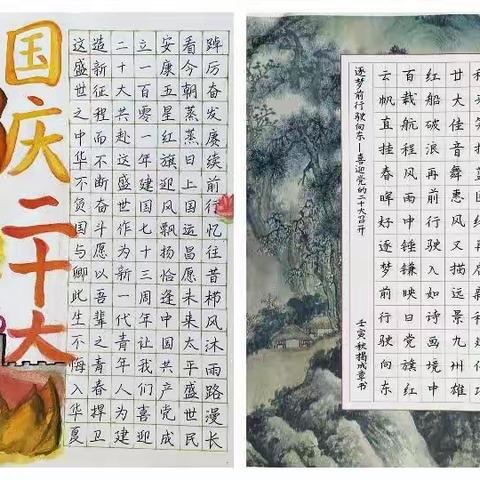 国庆
二十大
踔厉奋发赓续前行忆往昔栉风沐雨路漫长
看今朝蒸蒸日上国运昌愿未来太平盛世民
安康五星红旗迎风飘扬恰逢中国共产党成
立一百零一年建国七十三周年让我们喜迎
二十大共赴这盛世作为新一代青年人为建
造新征程而不断奋斗愿以吾辈之青春捍卫
这盛世之中华不负国与卿此生不悔入华夏
廿大佳音舞惠风又描远景九州雄
红船破浪再前行驶入如诗画境中
百载航程风雨中锤镰映日党旗红
云帆直挂春晖好逐梦前行驶向东
逐梦前行驶向东—喜迎党的二十大召开
壬寅秋揭成章书